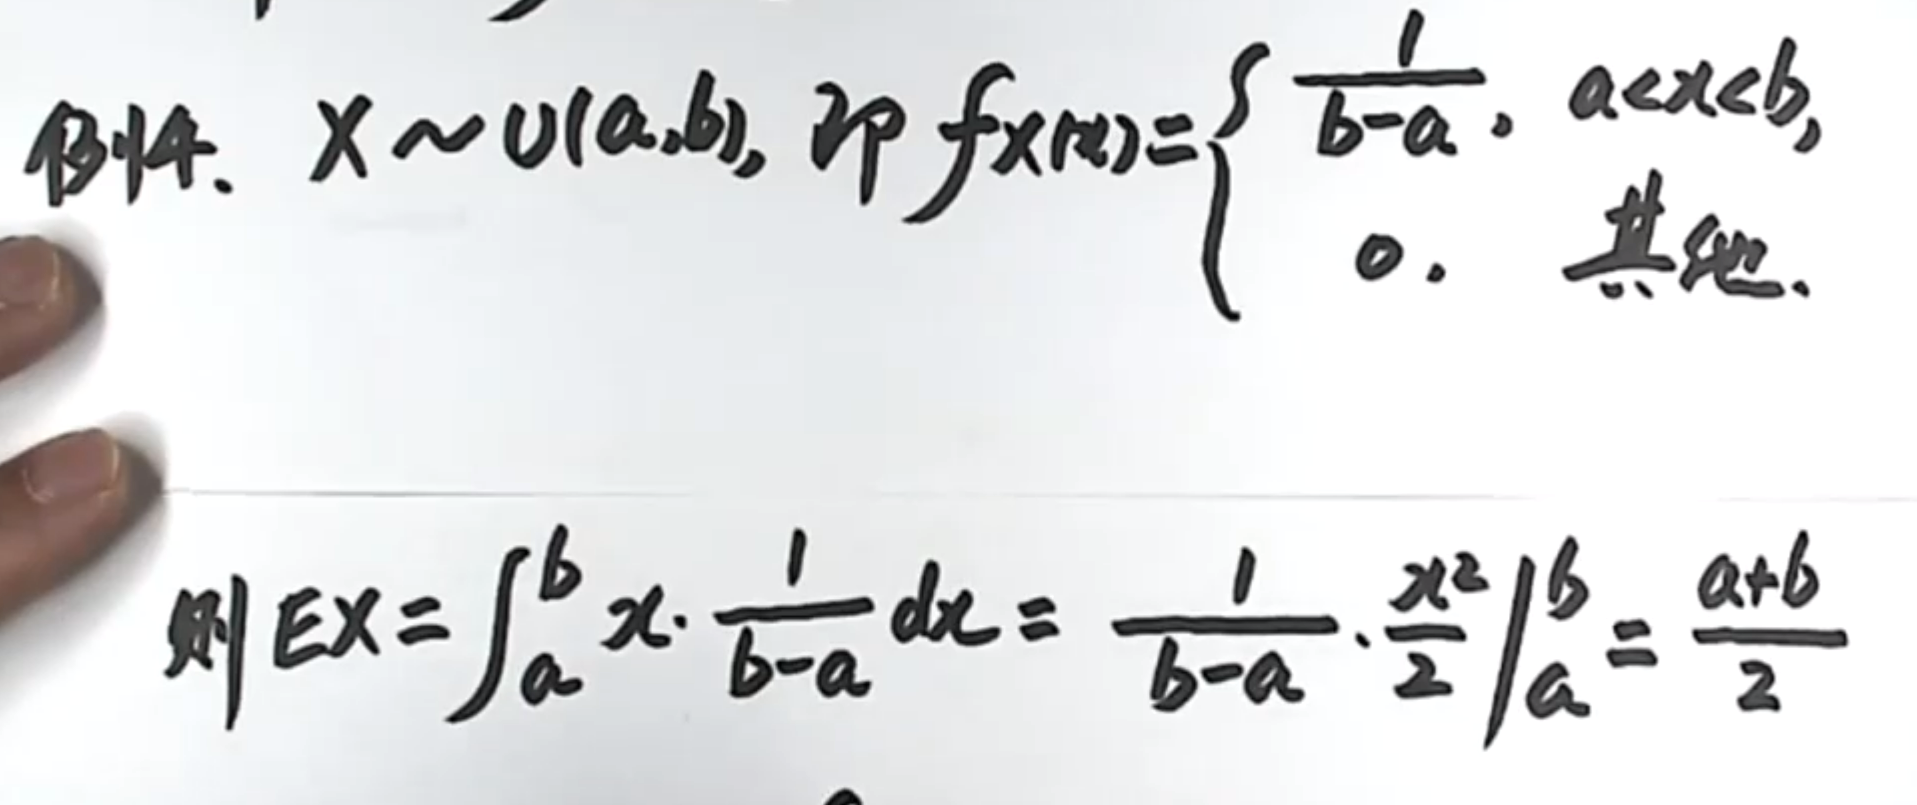 例4. X ~ U(a,b), 即 f_X(x) = { 1/(b-a), a<x<b,
0, 其他.
则 EX = ∫_a^b x · 1/(b-a) dx = 1/(b-a) · x²/2 |_a^b = (a+b)/2